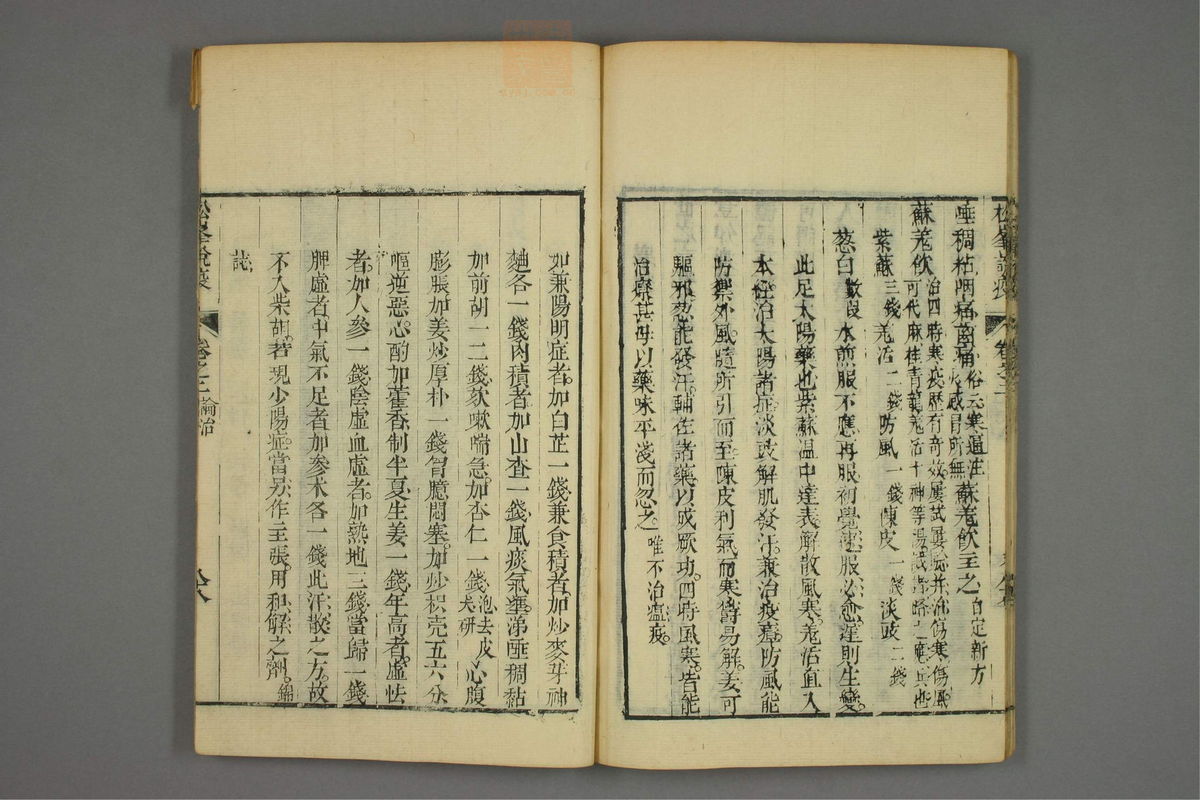 唾稠粘咽痛
蘇羌飲主之自定新方
蘇羌飲治四時寒疫歷有奇效屢試屢驗并治傷寒傷風
可代麻桂青龍羌活十神等湯
紫蘇三錢羌活二錢防風一錢陳皮一錢淡豉二錢
葱白數段水煎服不應再服初覺速服必愈遲則生變
此足太陽藥也紫蘇温中達表解散風寒羌活直入
本經治太陽諸症淡豉解肌發汗兼治疫瘧防風能
防禦外風隨所引而至陳皮利氣而寒鬱易解姜可
驅邪葱能發汗輔佐諸藥以成厥功四時風寒皆能
治療其毋以藥味平淺而忽之唯不治瘟疫
松峯說疫
卷之二
論治
如兼陽明症者加白芷一錢兼食積者加炒麥芽神
麯各一錢肉積者加山查一錢風痰氣壅涕唾稠黏
加前胡一二錢欬嗽喘急加杏仁一錢泡去皮尖研心腹
膨脹加姜炒厚朴一錢胷臆悶塞加炒枳壳五六分
嘔逆惡心酌加藿香制半夏生姜一錢年高者虛怯
者加人參一錢陰虛血虛者加熟地三錢當歸一錢
脾虛者中氣不足者加參术各一錢此汗散之方故
不入柴胡若現少陽症當另作主張用和解之劑錦
誌
松峯說疫
卷之二
論治